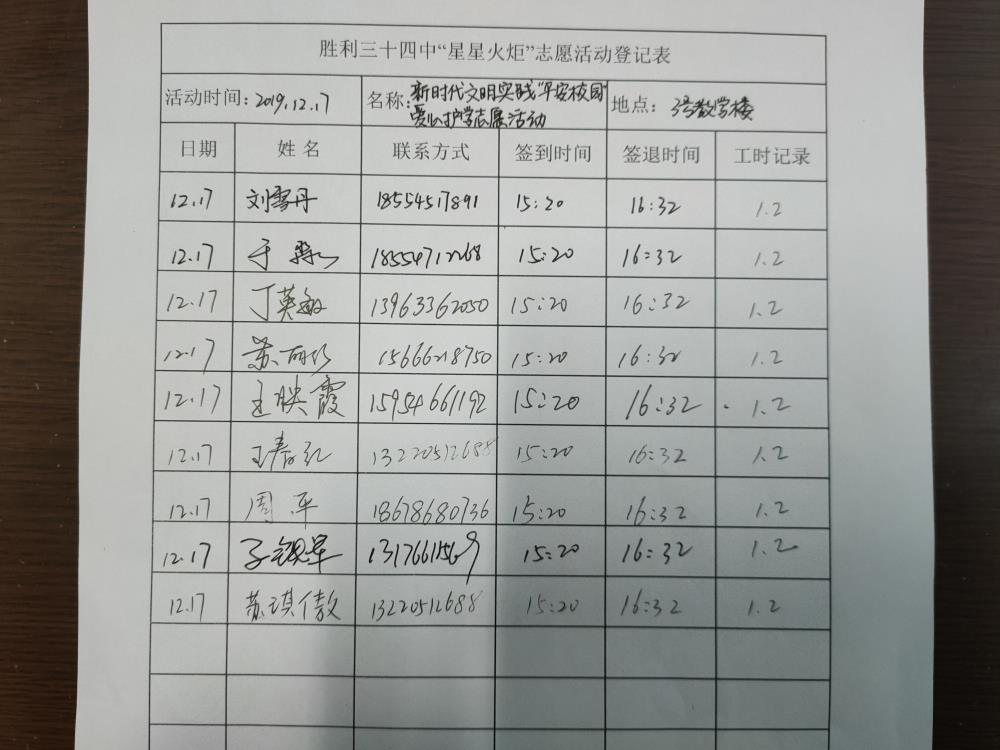 胜利三十四中“星星火炬”志愿活动登记表
活动时间:2019.12.17 名称:新时代文明实践"平安校园"爱心护学志愿活动 地点:3号教学楼
日期 姓名 联系方式 签到时间 签退时间 工时记录
12.17 刘雪丹 18554517891 15:20 16:32 1.2
12.17 于 18554712268 15:20 16:32 1.2
12.17 丁英敏 13963362050 15:20 16:32 1.2
12.17 苏丽珍 15666218750 15:20 16:32 1.2
12.17 王映霞 15954661192 15:20 16:32 1.2
12.17 王春红 13220512688 15:20 16:32 1.2
12.17 周平 18678680736 15:20 16:32 1.2
12.17 15:20 16:32 1.2
12.17 苏琪傲 13220512688 15:20 16:32 1.2